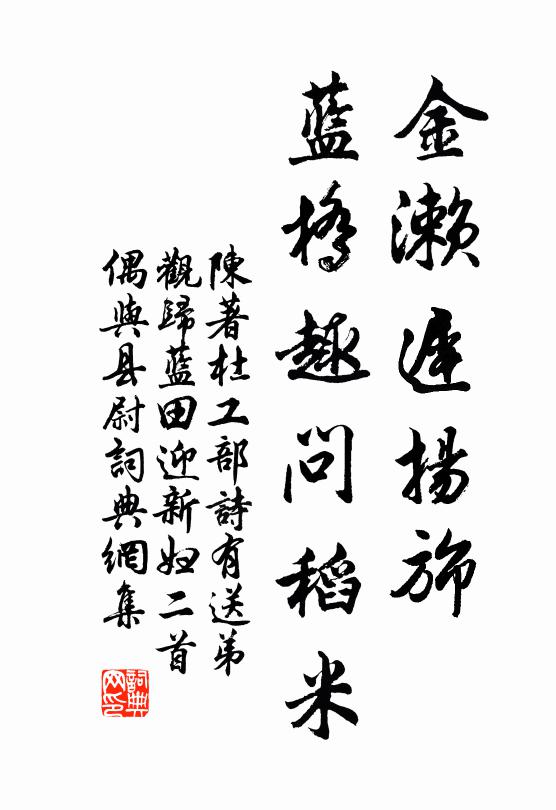 金瀨遲揚斾
藍橋趣問稻米
陳著杜工部詩有送弟
觀歸藍田迎新妇二首
偶與县尉詞典網集
詞典
网印